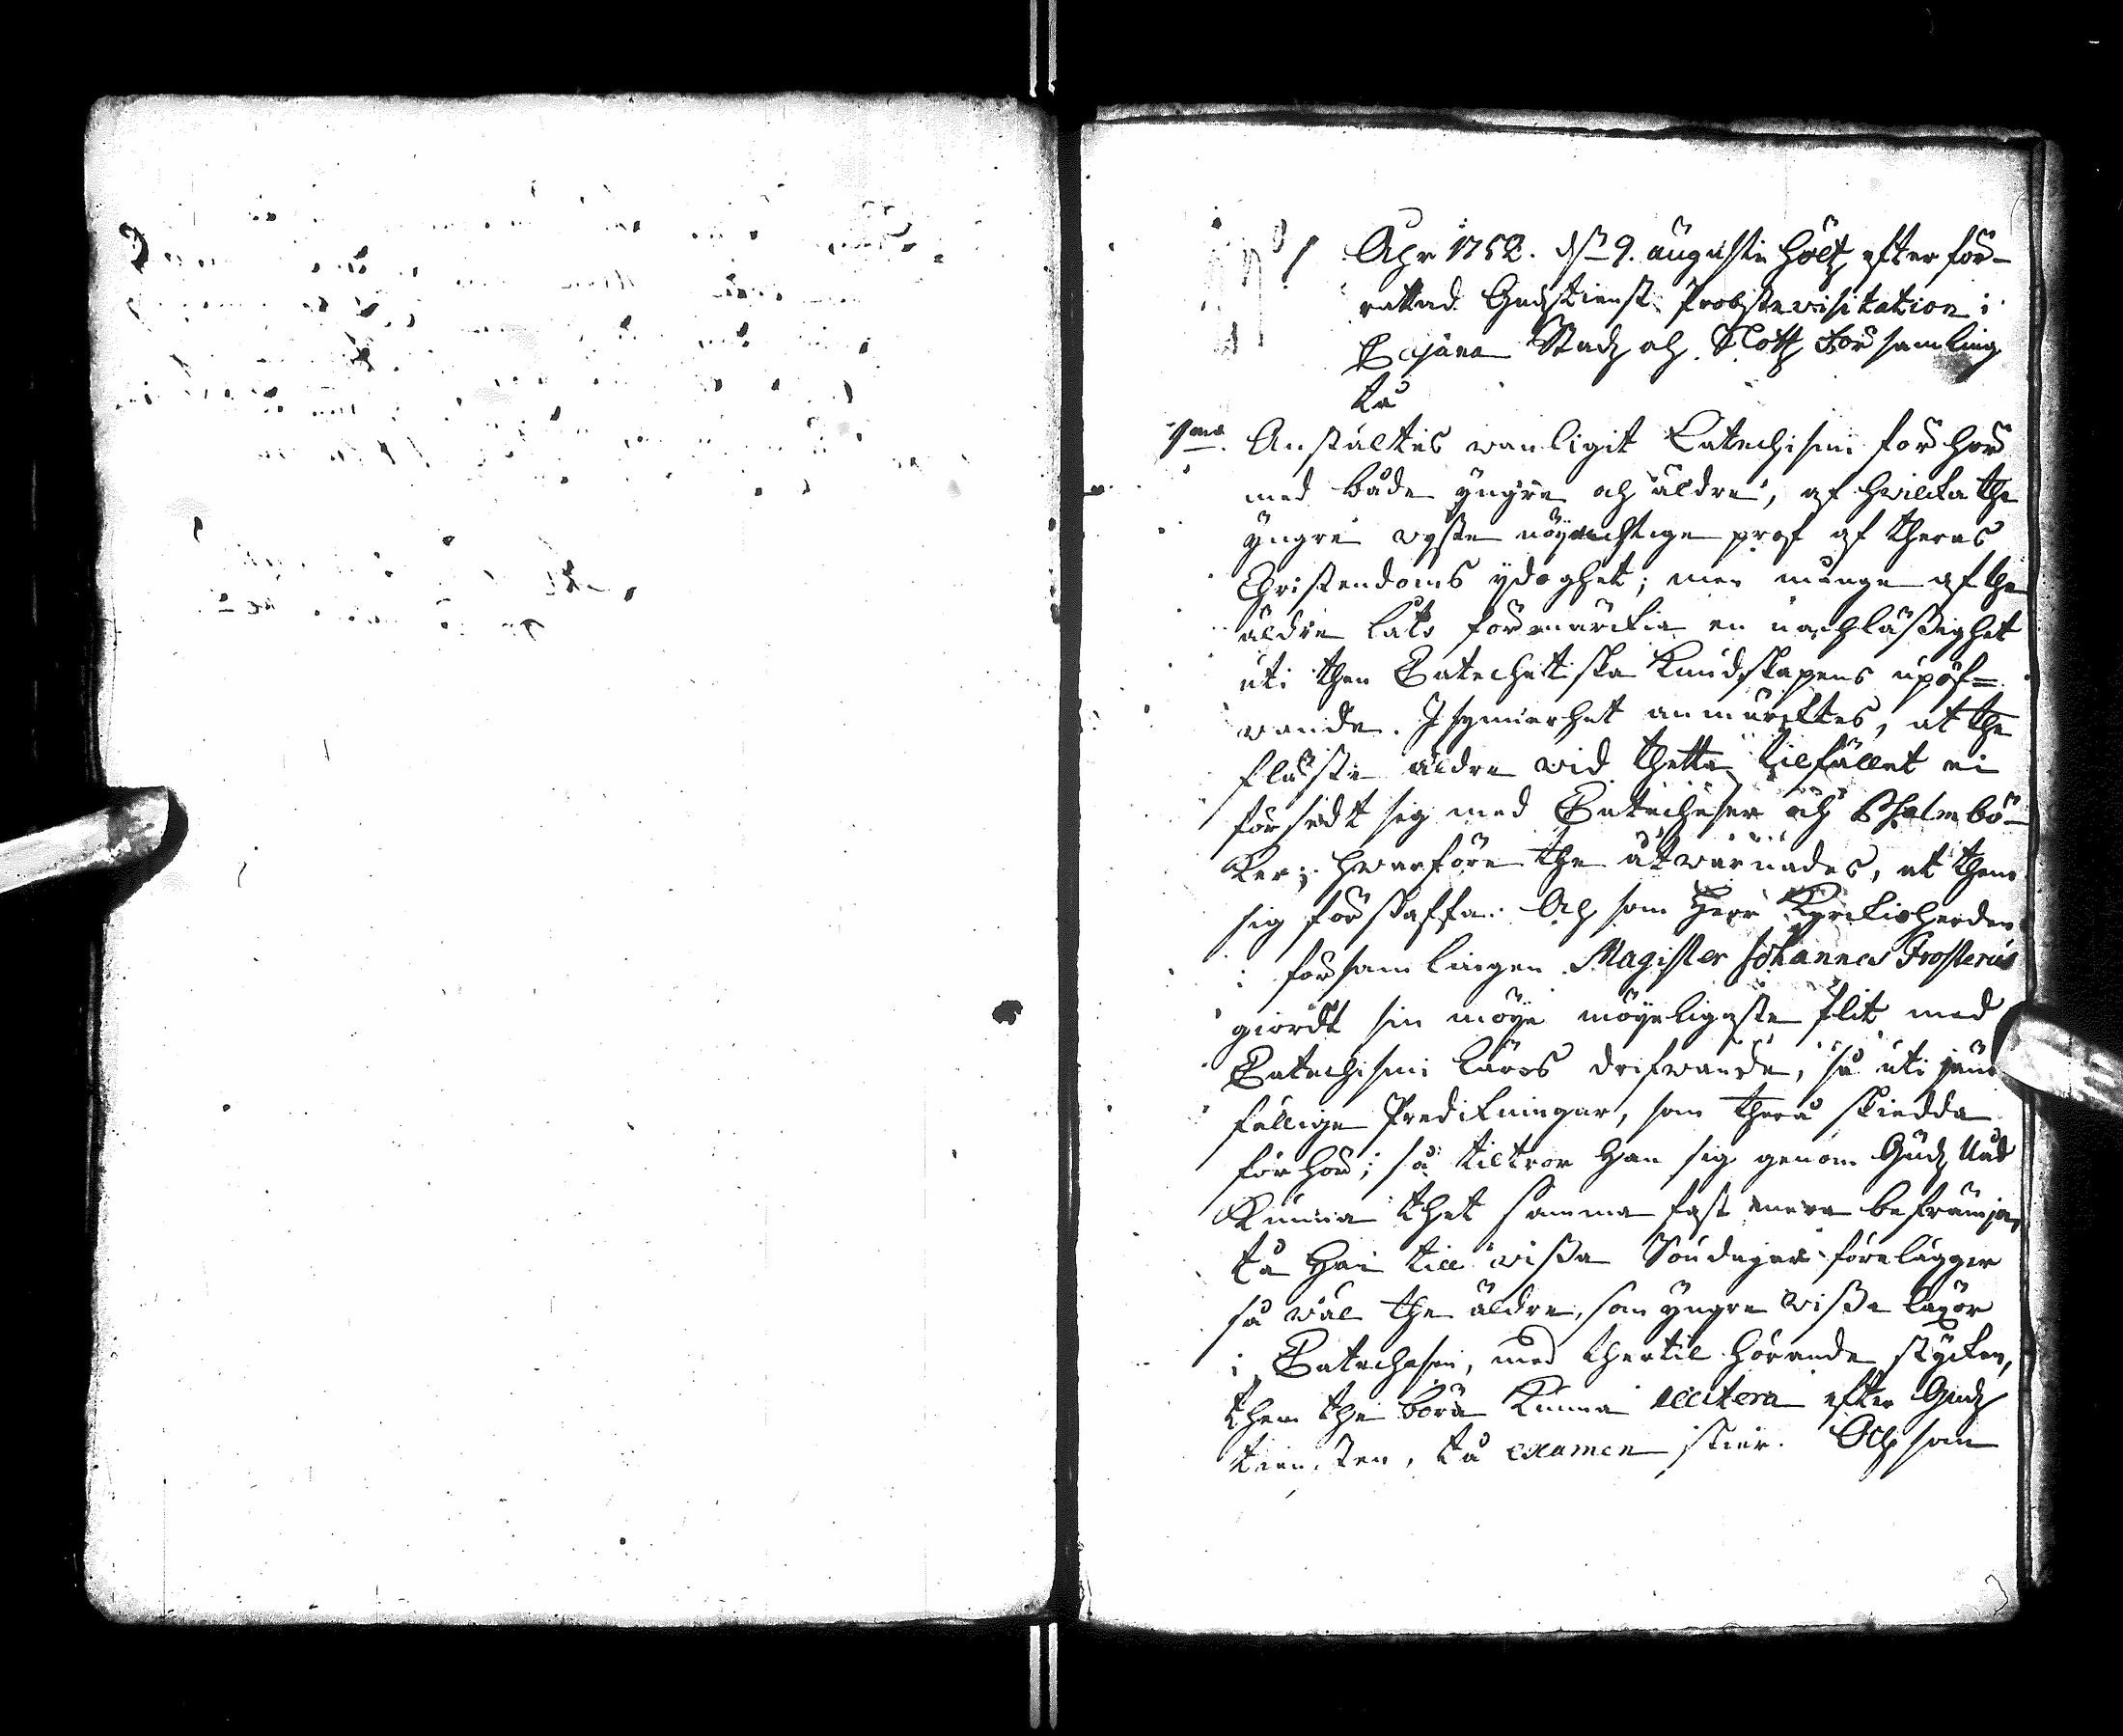 Åhr 1752. d. 9. augusti höltz efter för-
rattad Gudztienst Probstevisitation i
Cajana Stadz och Slottz Församling
tå
1mo. Anstältes vanligit Catechismi förhör
med både yngre och äldre, af hvilka the
yngre vyste nöyachtige prof af theras
Christendoms ydoghet; men många af the
äldre läto förmärckia en nachläßighet
uti then Catechetiska Kundskapens upöf-
vande. Isynnerhet anmärcktes, at the
fläste äldre vid thetta tilfället ei
försedt sig med Catecheser och Psalmbö-
ker; hvarföre the åtvarnades, at them
sig förskaffa. Och som Herr Kyrckioherden
i församlingen Magister Johannes Frosterus
giördt sin möye möyeligaste flit med
Catechismi läros drifvande, så uti
fällige Predikningar, som thera skiedda
förhör; så tiltror Han sig genom Gudz Nåd
Kunna thet samma fast mera befrämja,
tå Han till vißa Söndagar förelägger
så väl the äldre, som yngre vißa läxor
i Catechesen, med thertil hörande stycken,
them the böra Kunna recitera efter Gudz
tiensten, tå examen skier. Och som